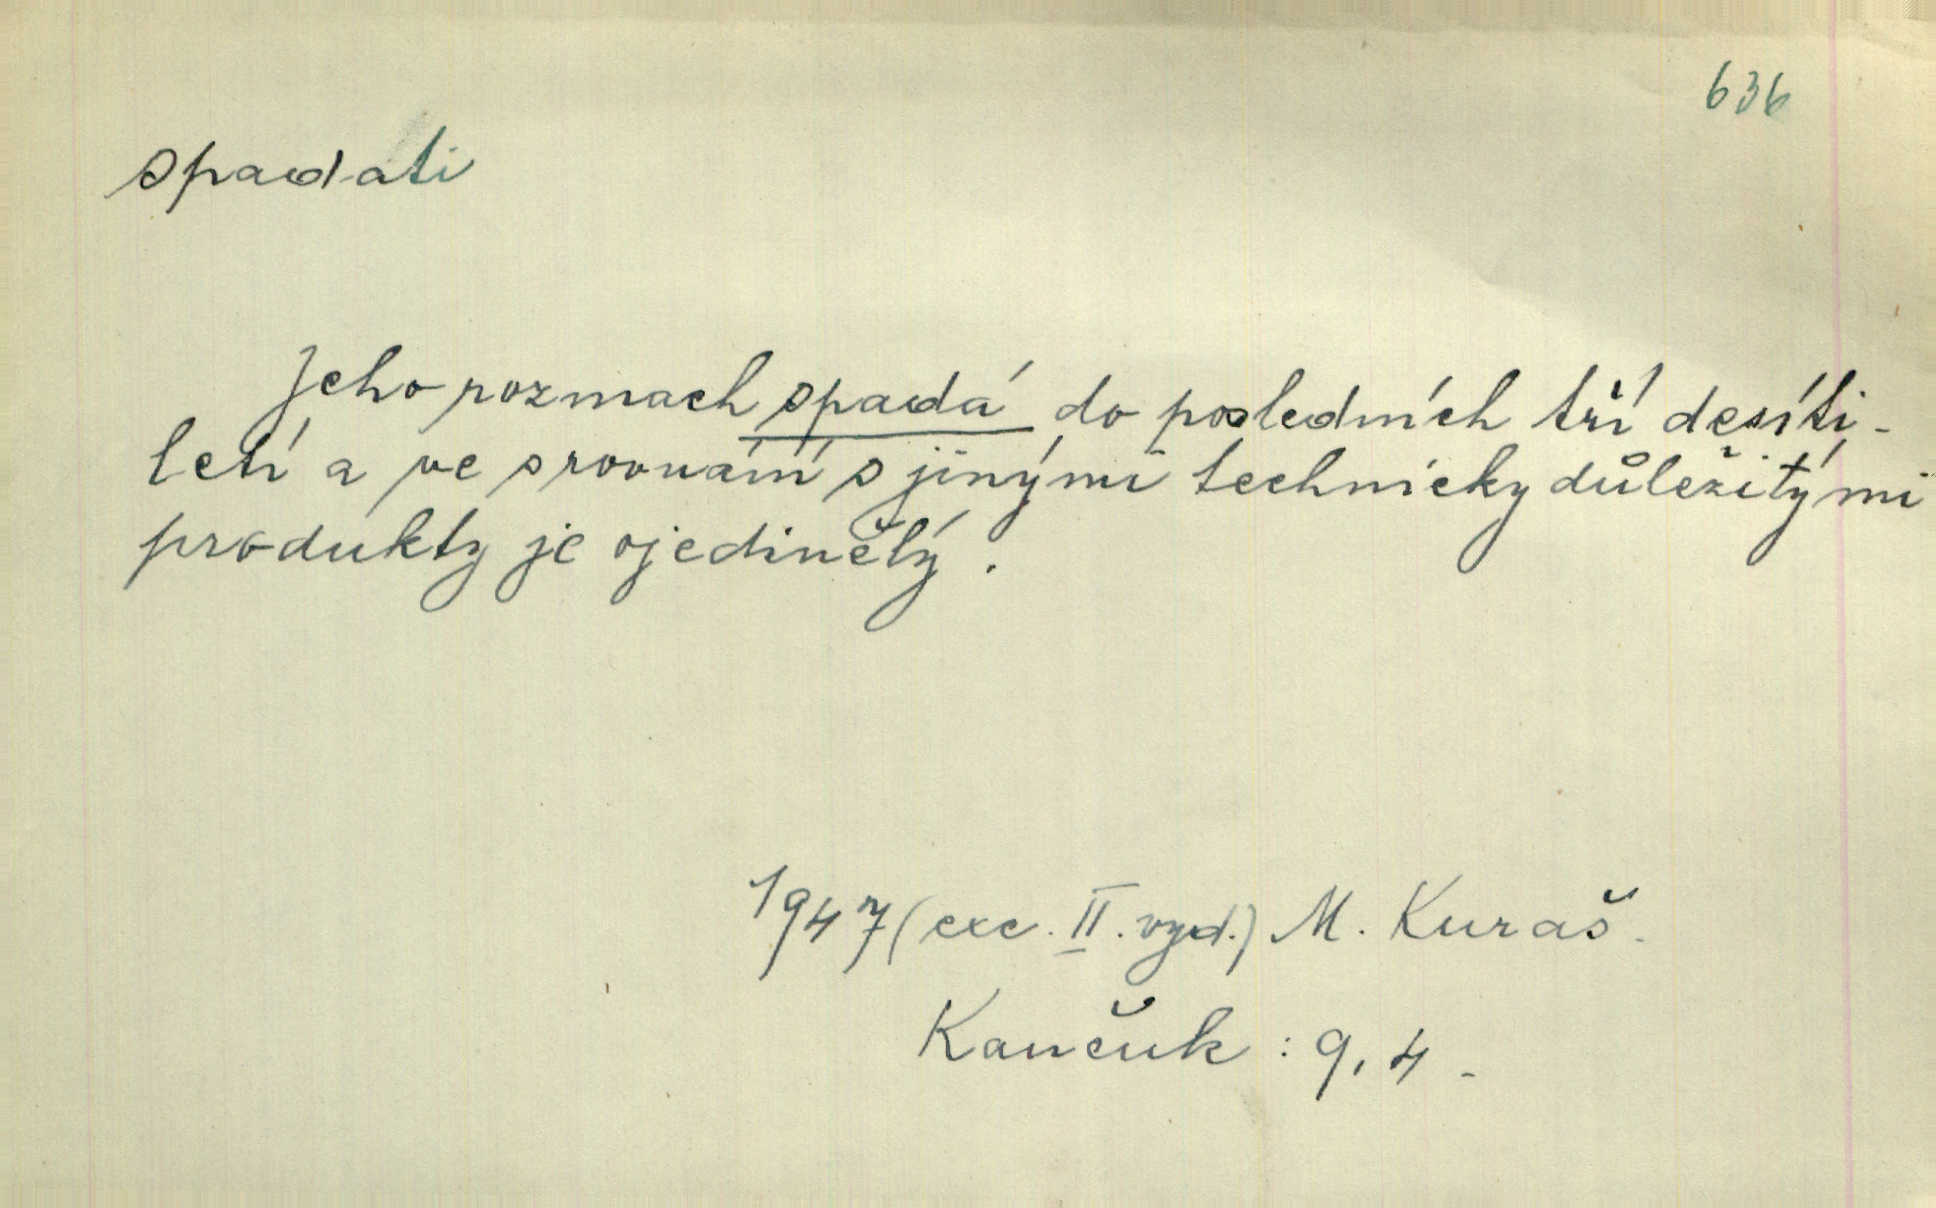 636
spadati
Jeho rozmach spadá do posledních tří desíti-
letí a ve srovnání s jinými technicky důležitými
produkty je ojedinělý.
1947 (exc. II. vyd.) M. Kuraš.
Kaučuk: 9, 4.